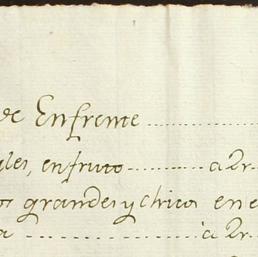 de Enfrente ..........
les, en fruto .......... a 2r.
os grandes y chicos en e
a .......................... a 2r.